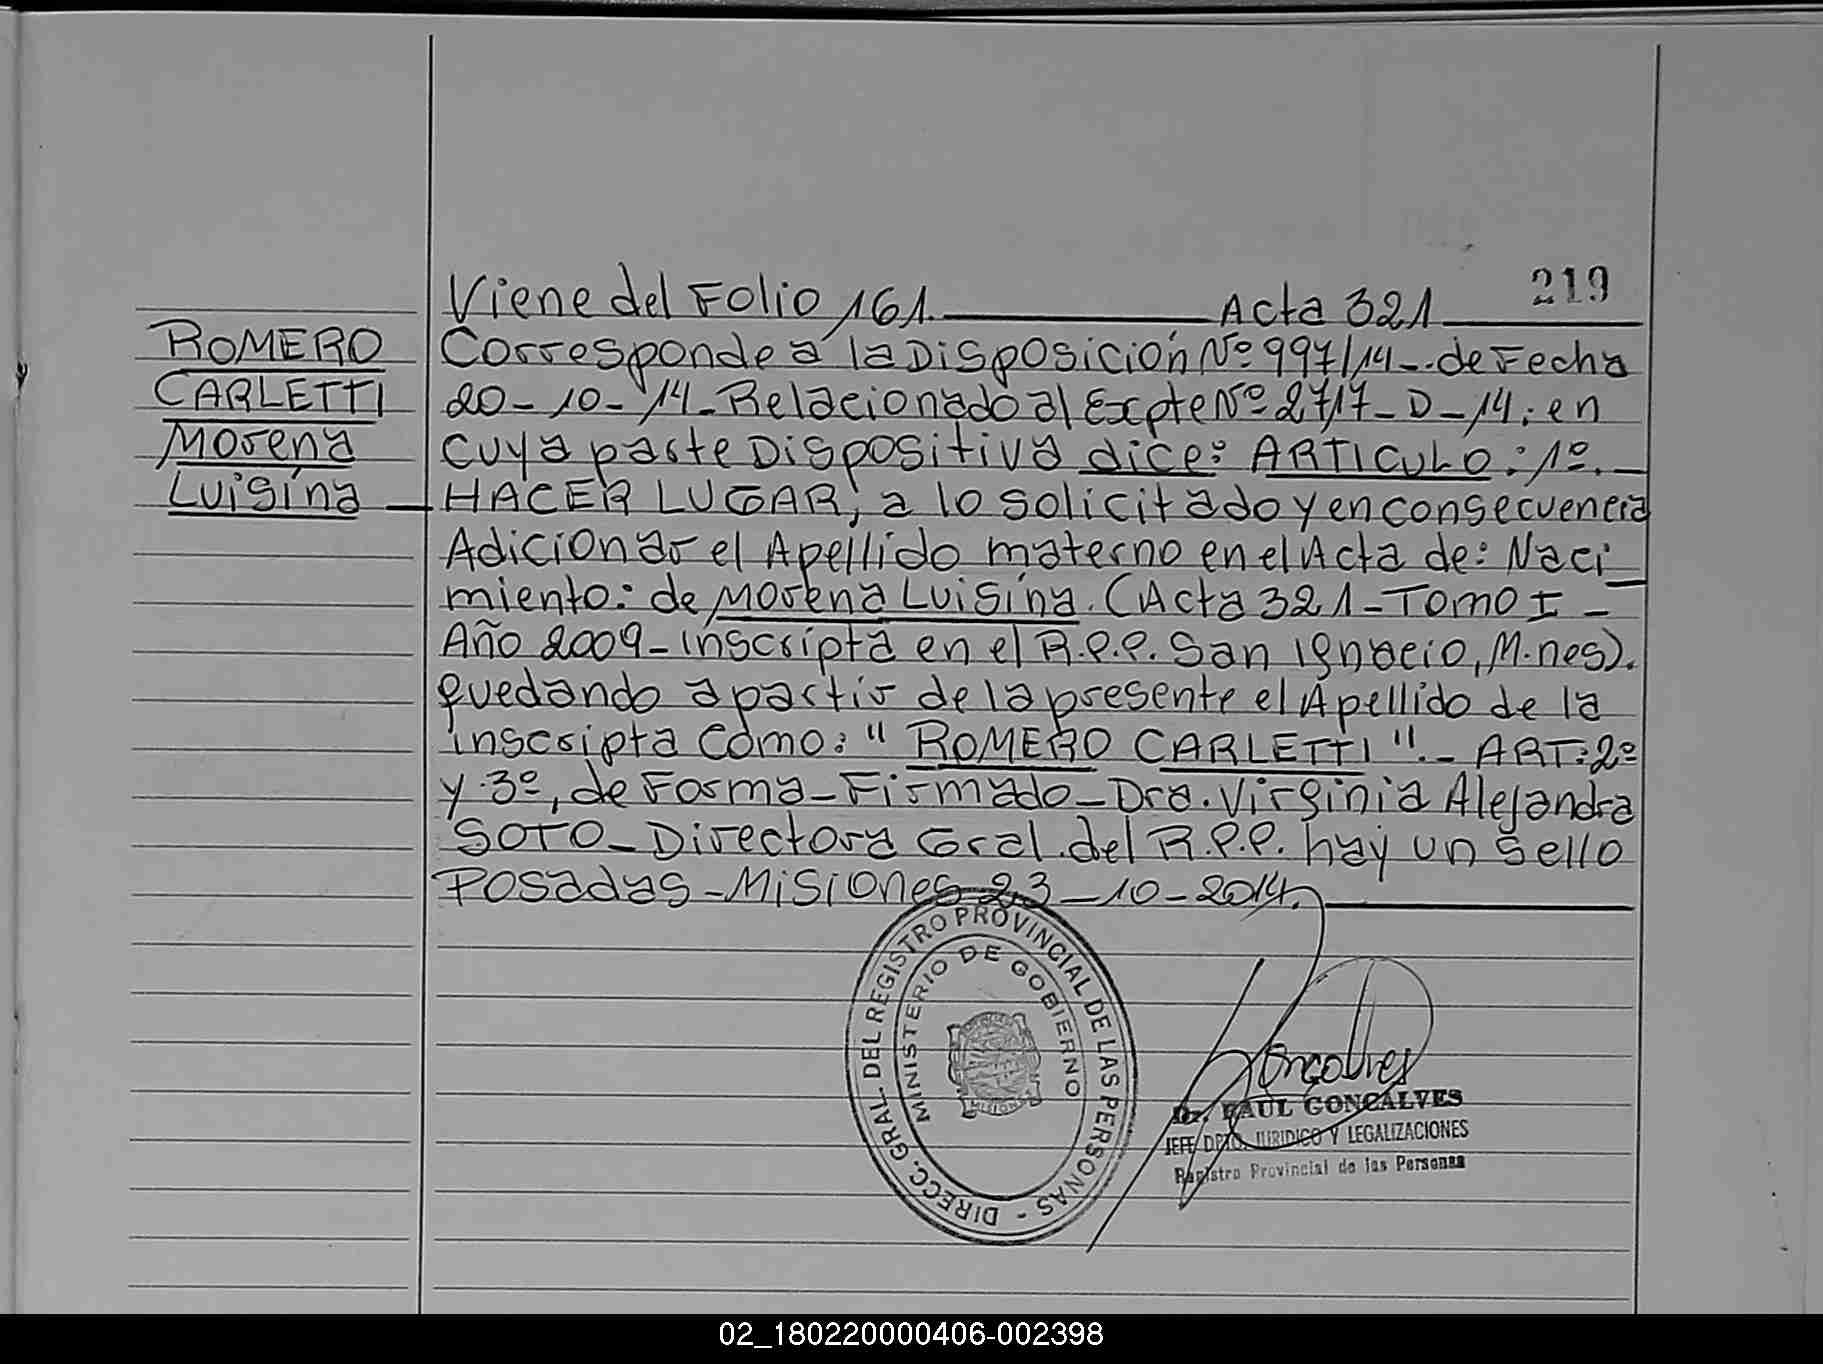 219
Viene del Folio 161. Acta 321
ROMERO
CARLETTI
Morena
Luisina
Corresponde a la Disposición Nº 997/14-. de Fecha
20-10-14- Relacionado al Expte Nº 2717-D-14; en
cuya parte Dispositiva dice: ARTICULO: 1º.
HACER LUGAR, a lo solicitado y en consecuencia
Adicionar el Apellido materno en el Acta de: Naci_
miento: de Morena Luisina. (Acta 321-Tomo I -
Año 2009- inscripta en el R.P.P. San Ignacio, M.nes).
quedando a partir de la presente el Apellido de la
inscripta como: "ROMERO CARLETTI".- ART: 2º
y 3º, de Forma-Firmado-Dra. Virginia Alejandra
SOTO-Directora Gral. del R.P.P. hay un sello
Posadas-Misiones 23-10-2014.
DIRECC. GRAL. DEL REGISTRO PROVINCIAL DE LAS PERSONAS -
MINISTERIO DE GOBIERNO
MISIONES
Gonçalves
Dr. RAUL GONÇALVES
JEFE DPTO. JURIDICO Y LEGALIZACIONES
Registro Provincial de las Personas
02_180220000406-002398